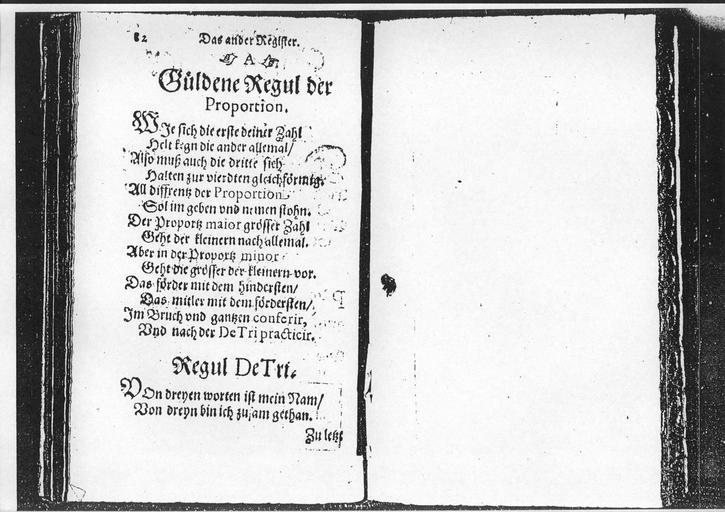 82 Das ander Register.
A
Güldene Regul der
Proportion.
WJe sich die erste deiner Zahl
Helt kegn die ander allemal/
Also muß auch die dritte sich
Halten zur vierdten gleichförmig.
All differentz der Proportion
Sol im geben vnd nemen stohn.
Der Proportz maior grösser Zahl
Geht der kleinern nach allemal.
Aber in der Proportz minor
Geht die grösser der kleinern vor.
Das förder mit dem hindersten/
Das mitler mit dem fördersten/
Im Bruch vnd gantzen conferir,
Vnd nach der DeTri practicir.
Regul DeTri.
VOn dreyen worten ist mein Nam/
Von dreyn bin ich zusam gethan.
Zu letzt